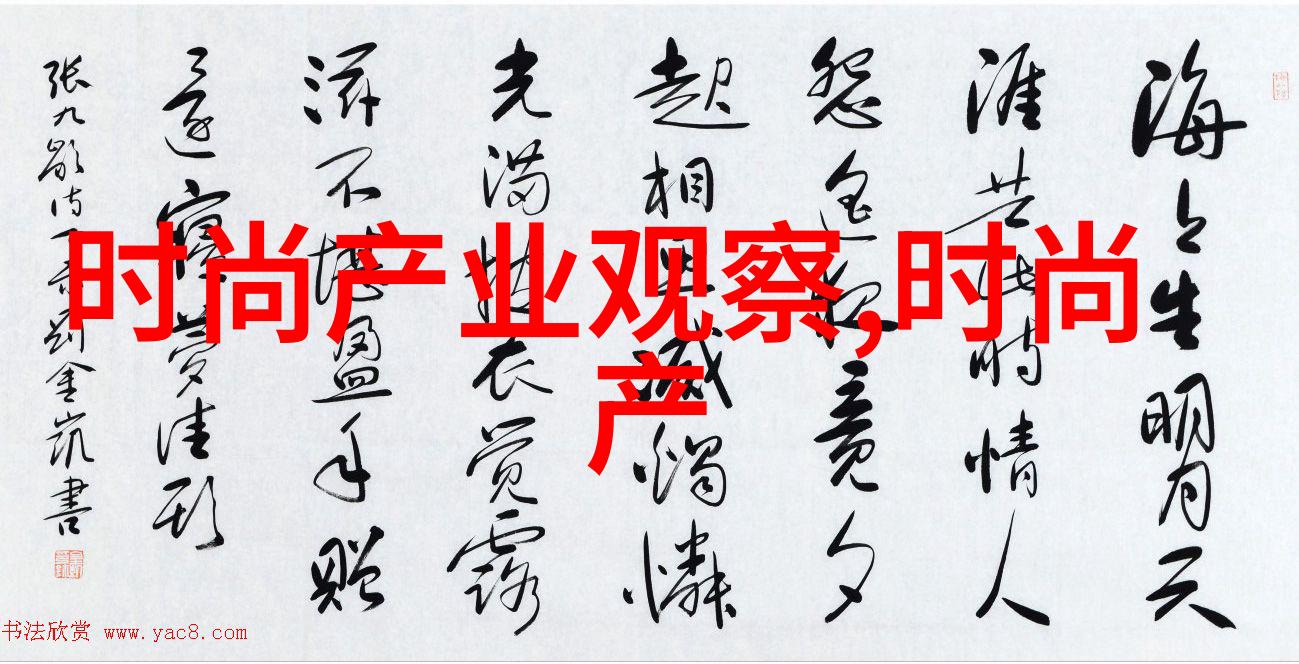 时尚产业观察,时尚
产
海上生明月天
涯共此時情人
怨遥夜竟夕
起相思滅燭憐
光满披衣觉露
滋不堪盈手贈
还寝夢佳期
张九龄诗一首刘金凯書
书法欣赏 www.yac8.com